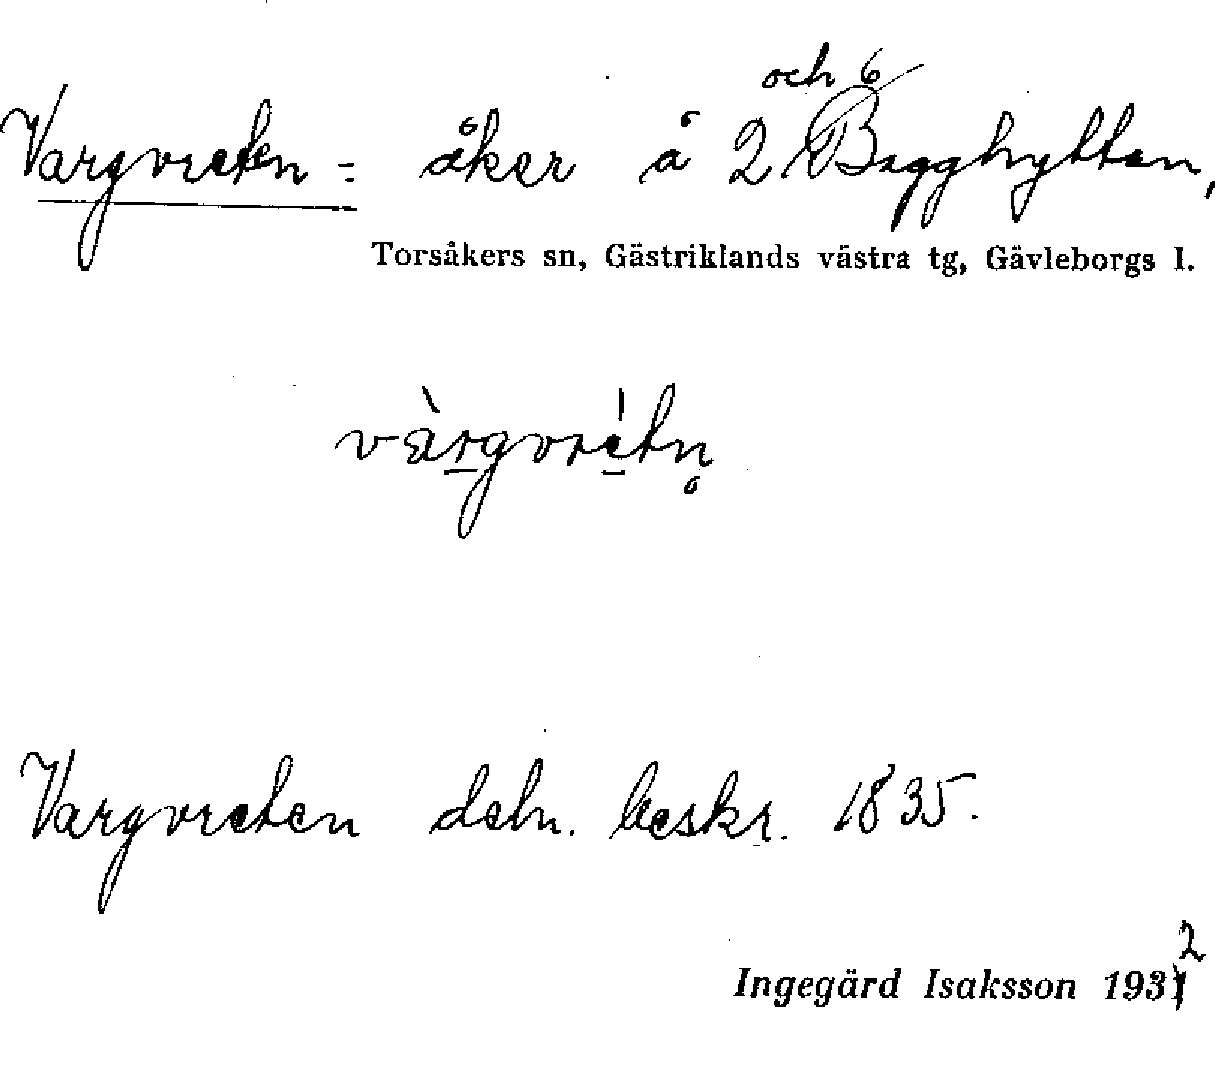 och 6
Vargvreten = åker å 2 Bagghyttan,
Torsåkers sn, Gästriklands västra tg, Gävleborgs l.
vàrgvretn̥
Vargvreten deln. beskr. 1835.
2
Ingegärd Isaksson 1931